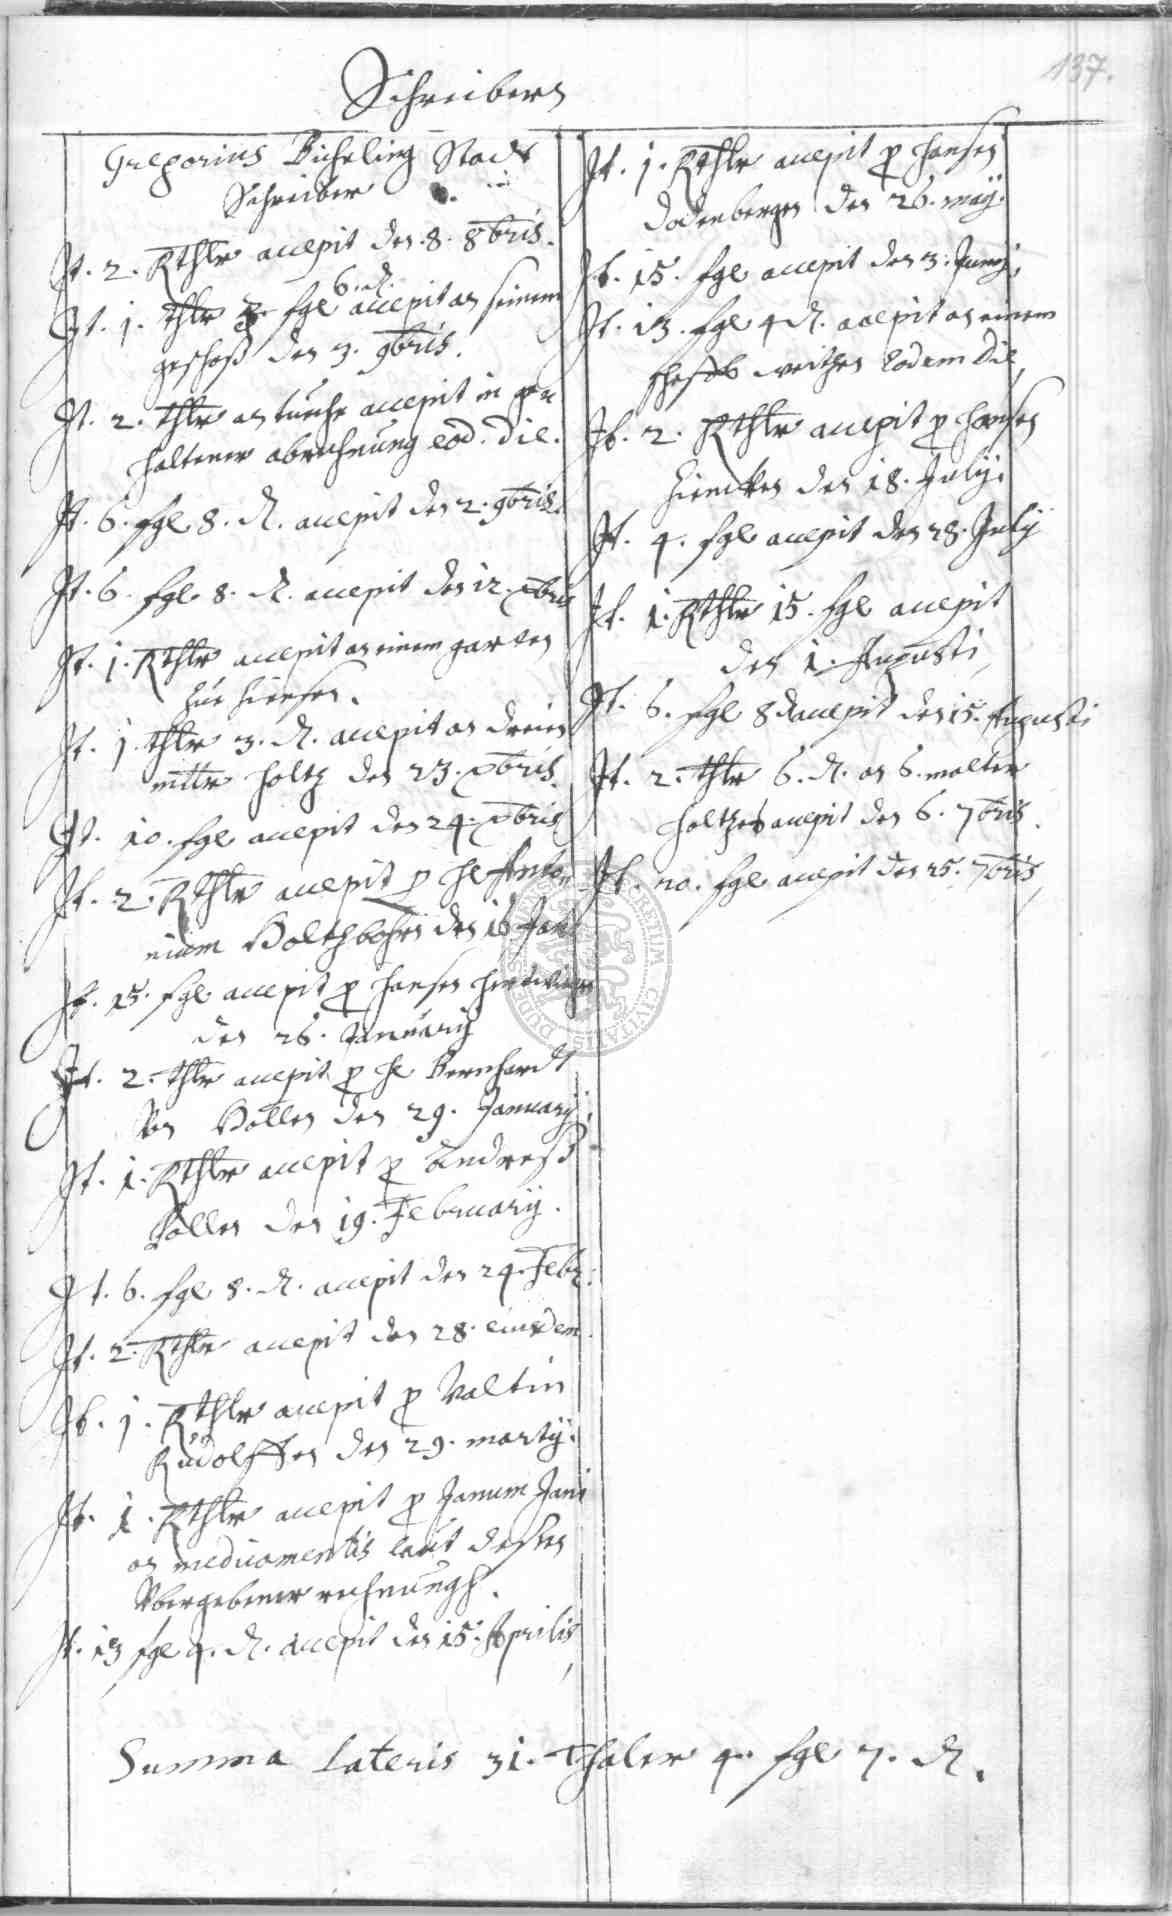 137.
Schreibers
Gregorius Bicheling Stadt
Schreiber
It. 2. Rthlr accepit den 8. 8bris.
6. d.
It. 1. thlr fgl accepit an seinem
geschoß den 3. 9bris.
It. 2. thlr an tuche accepit in ge
haltener abrechnung eod. die.
It. 6. fgl 8. d. accepit den 2. 9bris.
It. 6. fgl 8. d. accepit den 12. xbris
It. 1. Rthlr accepit an einem garten
zue
It. 1 thlr 3. d. accepit an dreien
mltr holtz den 23. xbris.
It. 10. fgl accepit den 24. xbris
It. 2. Rthlr accepit p hl Anto
nium den 16 Jan
It. 15. fgl accepit p Hansen
den 26. January
It. 2. thlr accepit p hl Bernhardt
Von Bollen den 29. January.
It. 1. Rthlr accepit p Andreß
Pollen den 19. February.
It. 6. fgl 8. d. accepit den 24. Febr.
It. 2. Rthlr accepit den 28. eiusdem
It. 1. Rthlr accepit p Valtin
Rudolffen den 29. marty.
It. 1. Rthlr accepit p Janum Jani
an medicamentis laut dessen
Vbergebener rechnungh.
It. 13 fgl 4. d. accepit den 15. Aprilis
It. 1. Rthlr accepit p Hansen
Dodenbergen den 26. may.
It. 15. fgl accepit den 3. Juny.
It. 13. fgl 4 d. accepit an einem
weitzen eodem die
It. 2. Rthlr accepit p Hansen
Hiencken den 18. July.
It. 4. fgl accepit den 28. July
It. 1. Rthlr 15. fgl accepit
den 1. Augusti
It. 6. fgl 8 d accepit den 15. Augusti
It. 2. thlr 6. d. an 6. malter
holtzes accepit den 6. 7bris.
It. 20. fgl accepit den 25. 7bris
Summa Lateris 31. Thaler 4. fgl 7. d.